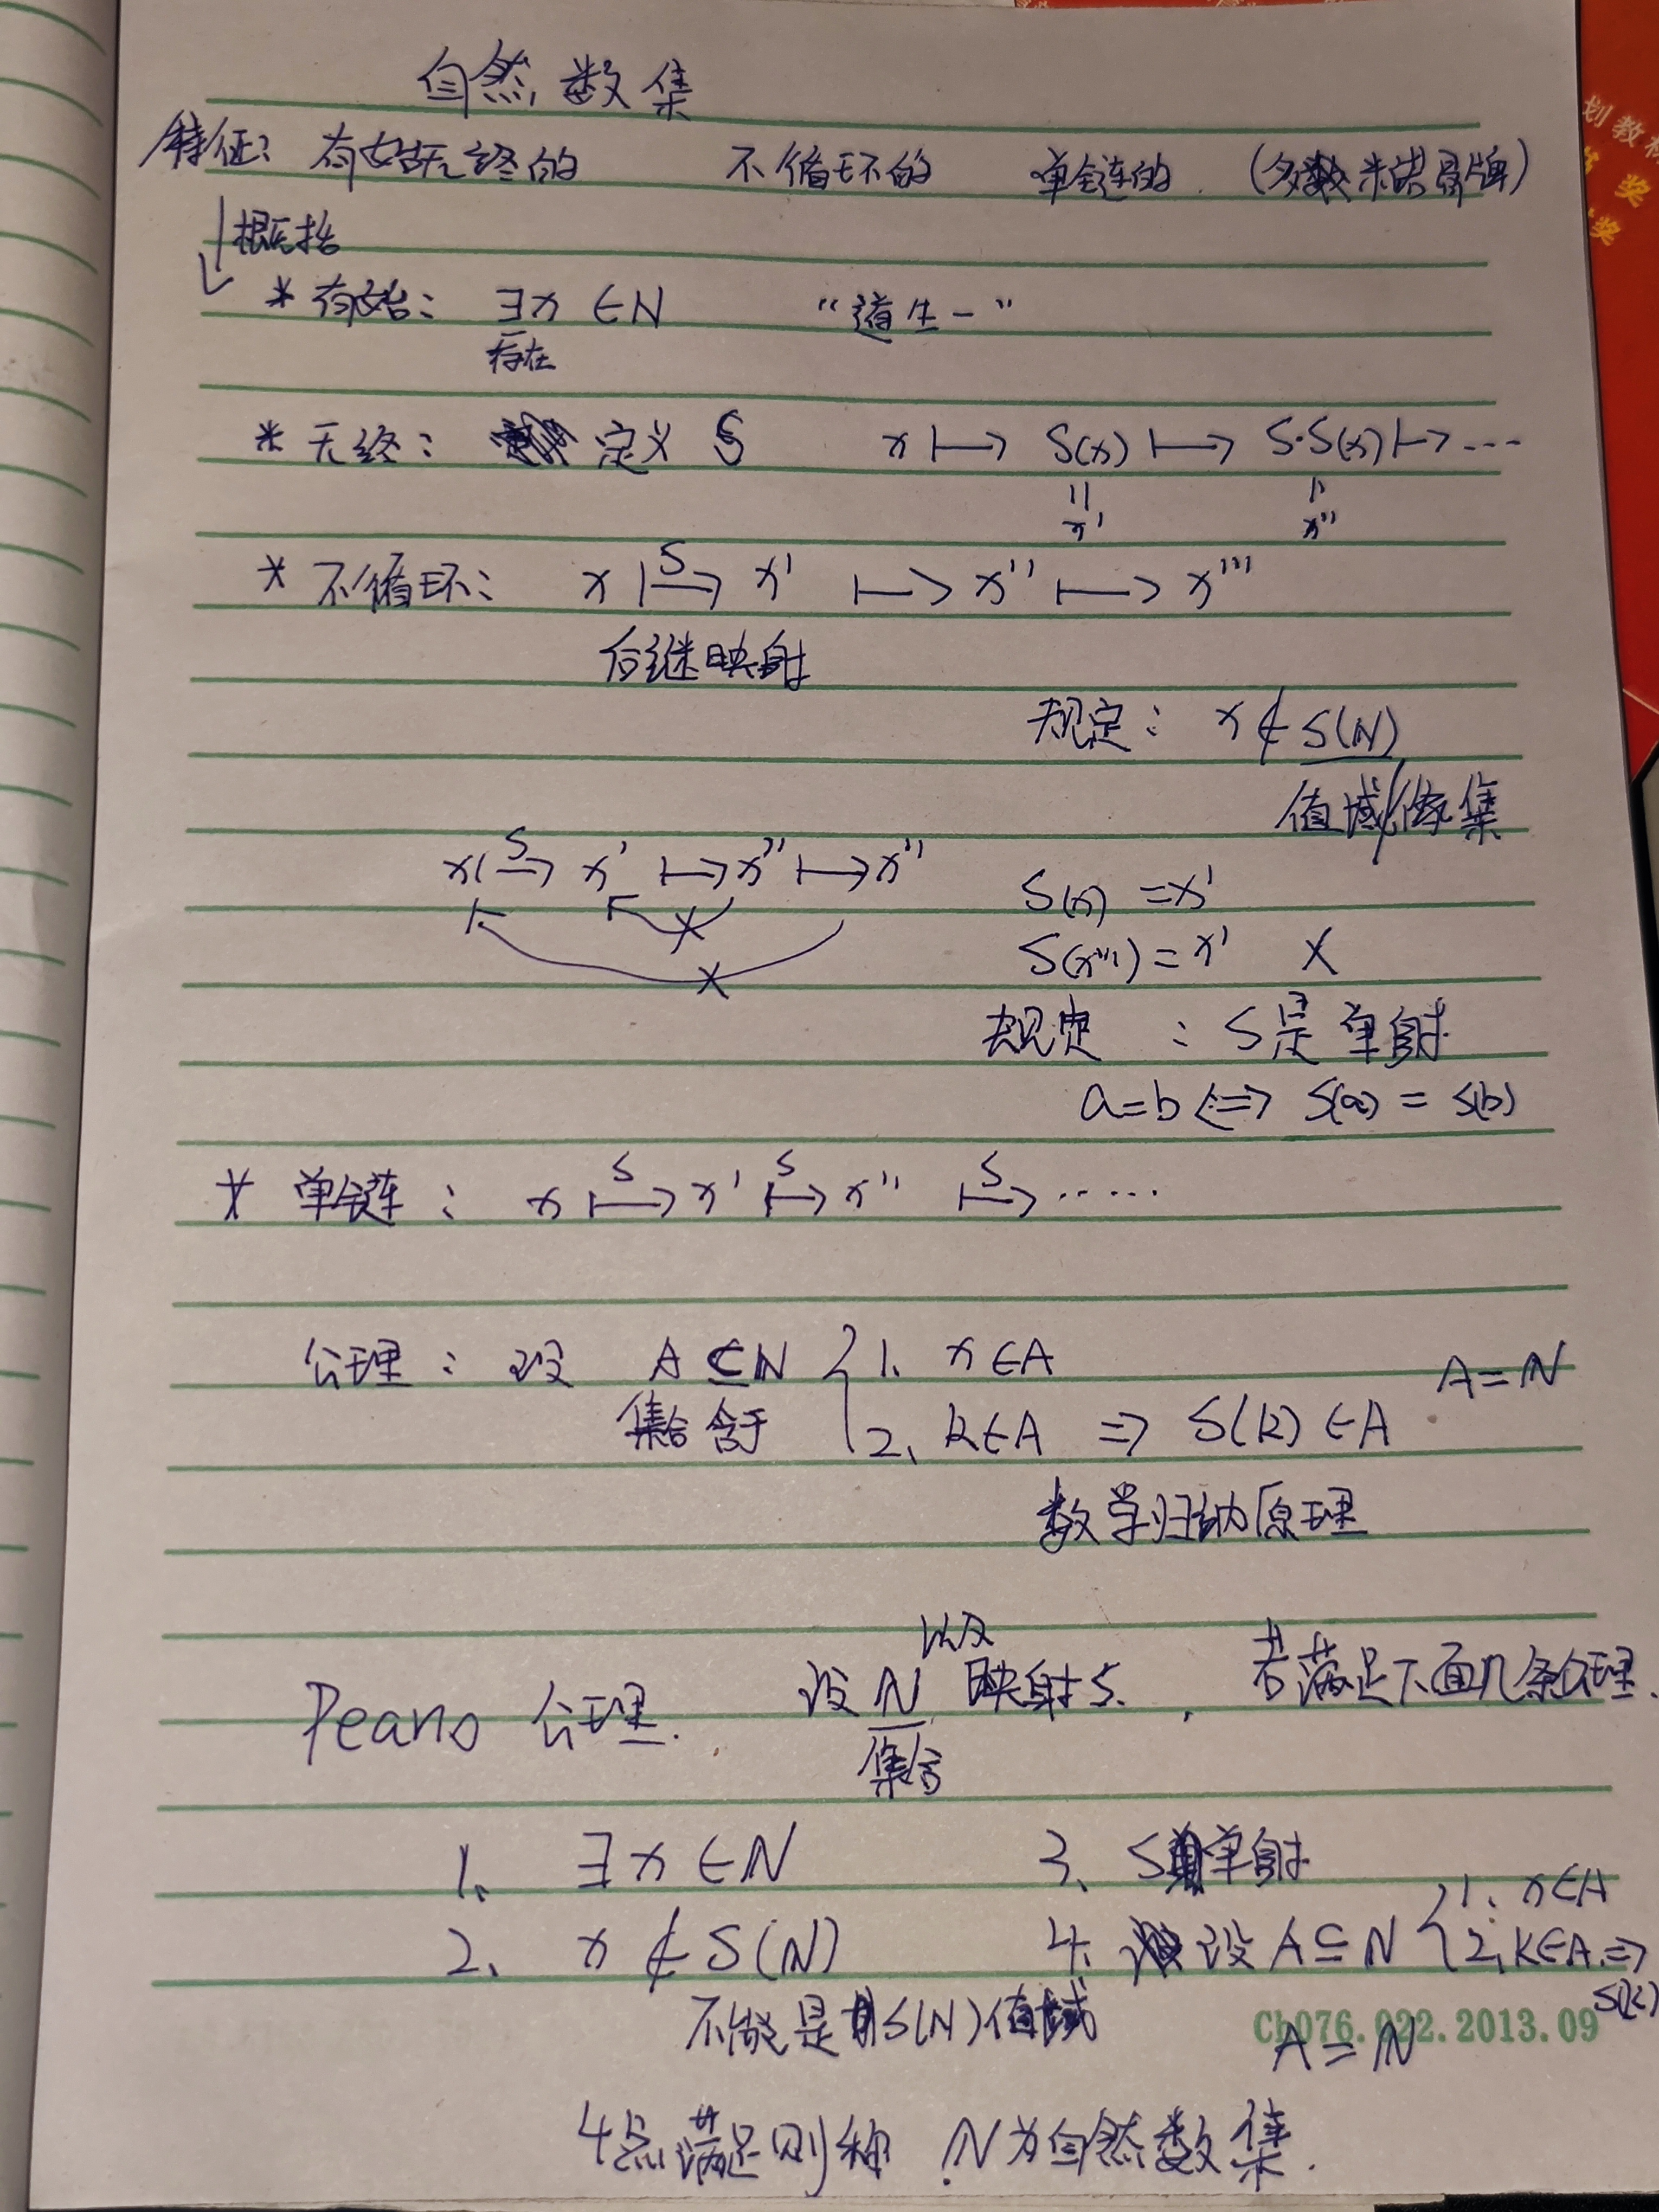 自然数集
特征: 有始无终的 不循环的 单链的 (多数米诺骨牌)
概括
* 有始: ∃x ∈N “道生一”
存在
* 无终: 定义 S x ↦ S(x) ↦ S·S(x) ↦ …
x' x''
* 不循环: x ↦ x' ↦ x'' ↦ x'''
S
后继映射
规定: x ∉ S(N)
值域/像集
x ↦ x' ↦ x'' ↦ x'''
S
S(x) = x'
S(x''') = x' ×
规定 : S是单射
a=b ⟺ S(a) = S(b)
* 单链: x ↦ x' ↦ x'' ↦ ……
S S S
公理: 设 A ⊆ N { 1. x∈A A=N
集合含于 2. k∈A ⇒ S(k) ∈A
数学归纳原理
以及
Peano 公理. 设 N 映射S. , 若满足下面几条公理.
集合
1. ∃x∈N 3. S单射
2. x ∉ S(N) 4. 设 A⊆N { 1. x∈A
2. k∈A ⇒
S(k)
不能是S(N)值域
Ch076.022.2013.09
A=N
4点满足则称 N为自然数集.